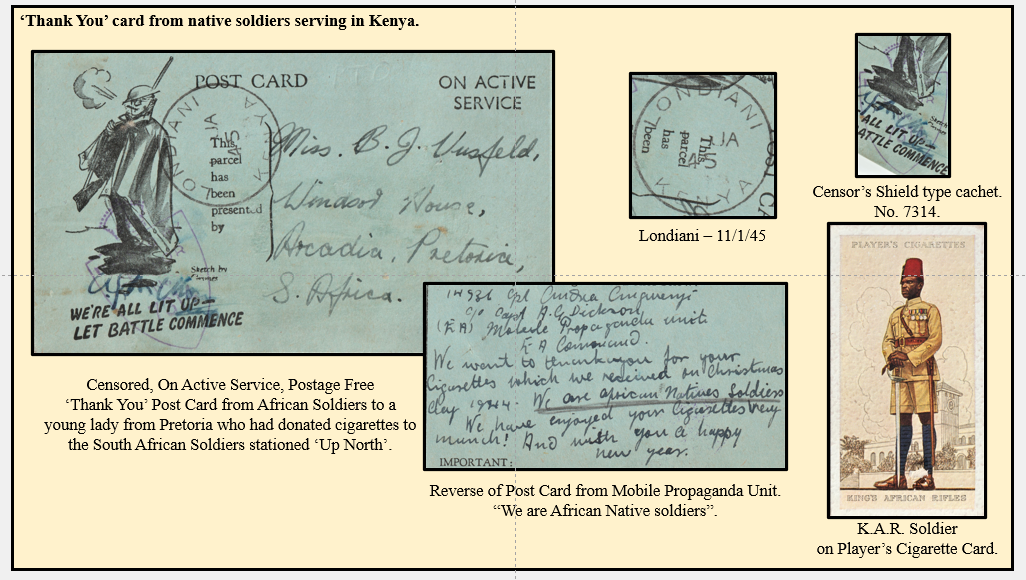 ‘Thank You’ card from native soldiers serving in Kenya.
POST CARD
ON ACTIVE
SERVICE
LONDIANI
JA
45
KENYA
This
parcel
has
been
presented
by
Miss. B. J. Vusfeld,
Windsor House,
Arcadia, Pretoria,
S. Africa.
Sketch by
WE'RE ALL LIT UP—
LET BATTLE COMMENCE
Censored, On Active Service, Postage Free
‘Thank You’ Post Card from African Soldiers to a
young lady from Pretoria who had donated cigarettes to
the South African Soldiers stationed ‘Up North’.
14936 Cpl
c/o Capt A.G. Dickson,
(EA) Mobile Propaganda unit
E A Command.
We want to thank you for your
Cigarettes which we received on Christmas
day 1944. We are African Natives Soldiers
We have enjoyed your Cigarettes very
munch! And wish you a happy
new year.
IMPORTANT:
Reverse of Post Card from Mobile Propaganda Unit.
“We are African Native soldiers”.
LONDIANI
JA
45
KENYA
This
parcel
has
been
Londiani – 11/1/45
Sketch by
ALL LIT UP—
BATTLE COMMENCE
Censor’s Shield type cachet.
No. 7314.
PLAYER'S CIGARETTES
KING'S AFRICAN RIFLES
K.A.R. Soldier
on Player’s Cigarette Card.